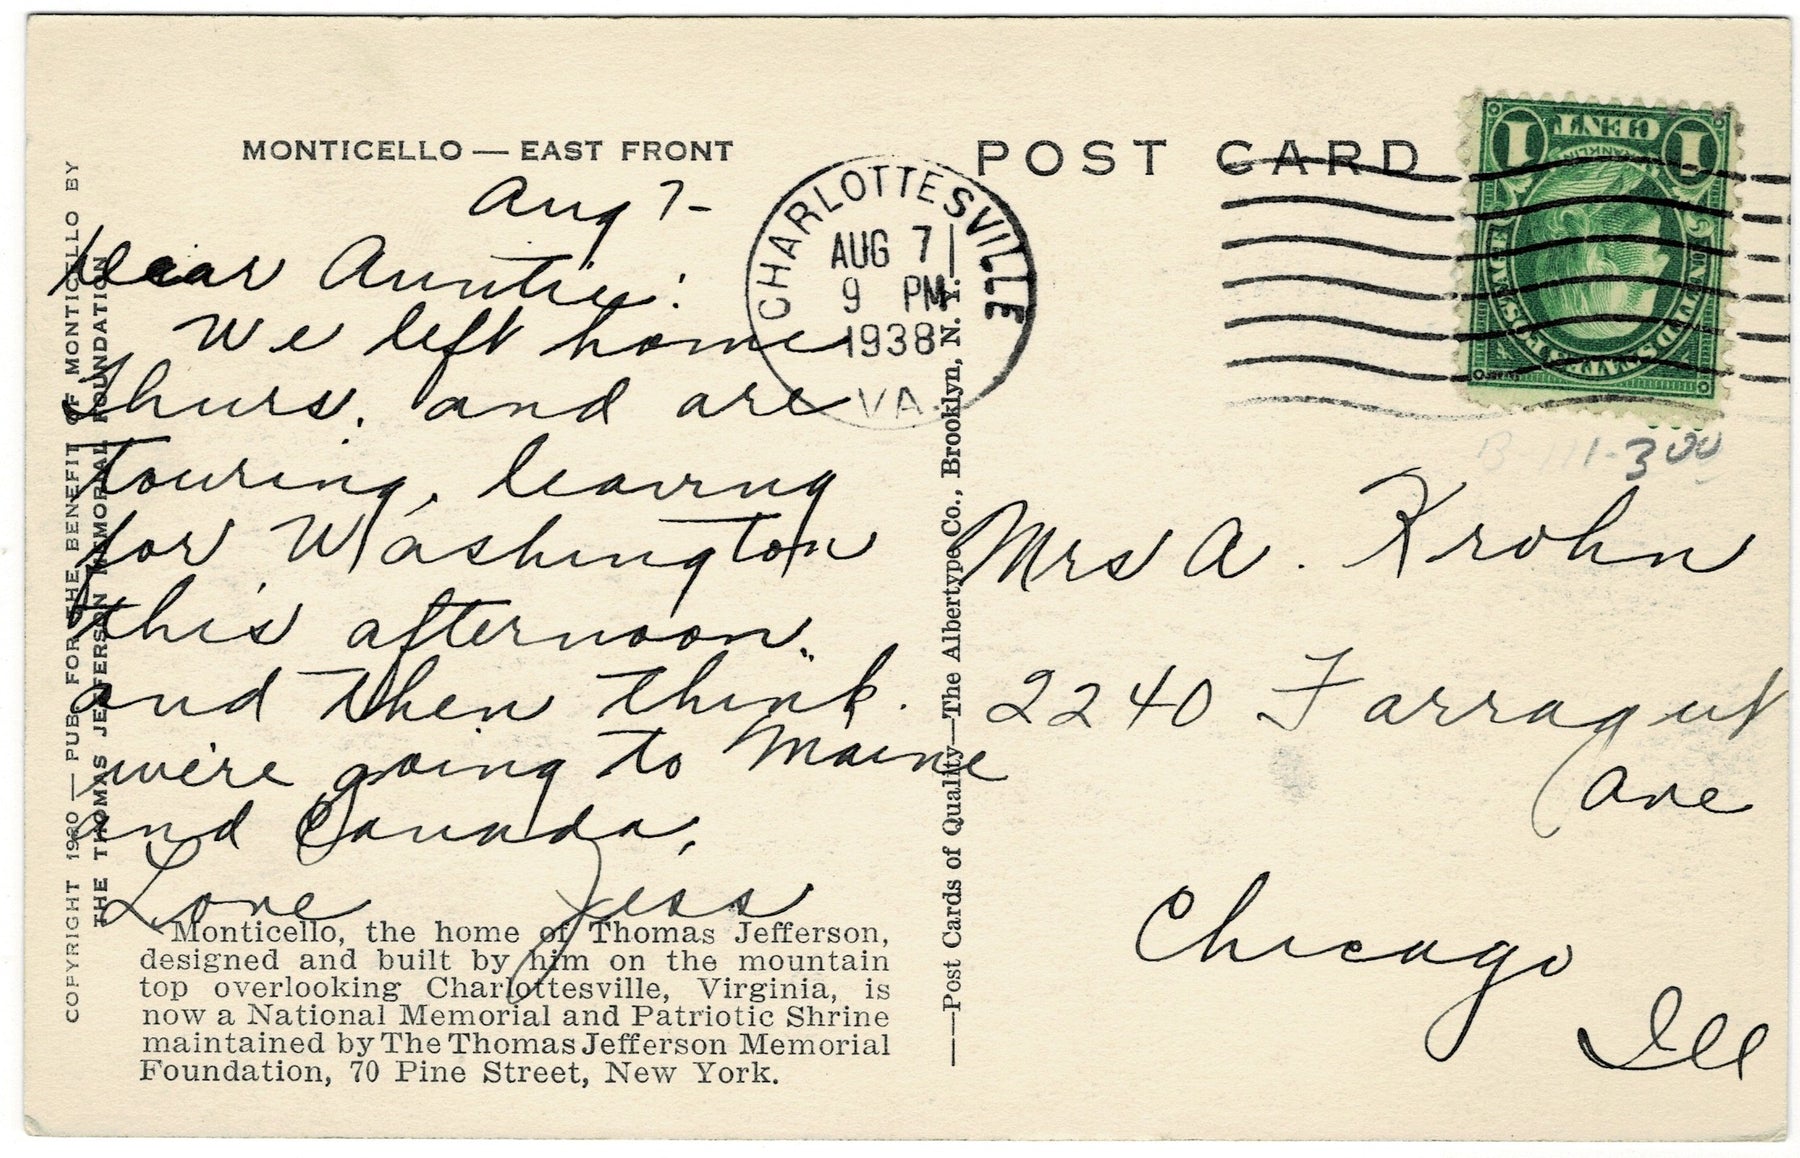 MONTICELLO — EAST FRONT
Aug 7-
Dear Auntie:
We left home
Thurs. and are
touring, leaving
for Washington
this afternoon.
and then think
we're going to Maine
and Canada,
Love Jess
Monticello, the home of Thomas Jefferson,
designed and built by him on the mountain
top overlooking Charlottesville, Virginia, is
now a National Memorial and Patriotic Shrine
maintained by The Thomas Jefferson Memorial
Foundation, 70 Pine Street, New York.
COPYRIGHT 1920 — PUB. FOR THE BENEFIT OF MONTICELLO BY
THE THOMAS JEFFERSON MEMORIAL FOUNDATION
CHARLOTTESVILLE
AUG 7
9 PM
1938
VA.
——Post Cards of Quality—The Albertype Co., Brooklyn, N. Y.——
POST CARD
1 CENT 1
FRANKLIN
UNITED STATES POSTAGE
3 00
Mrs A. Krohn
2240 Farragut
Ave
Chicago
Ill